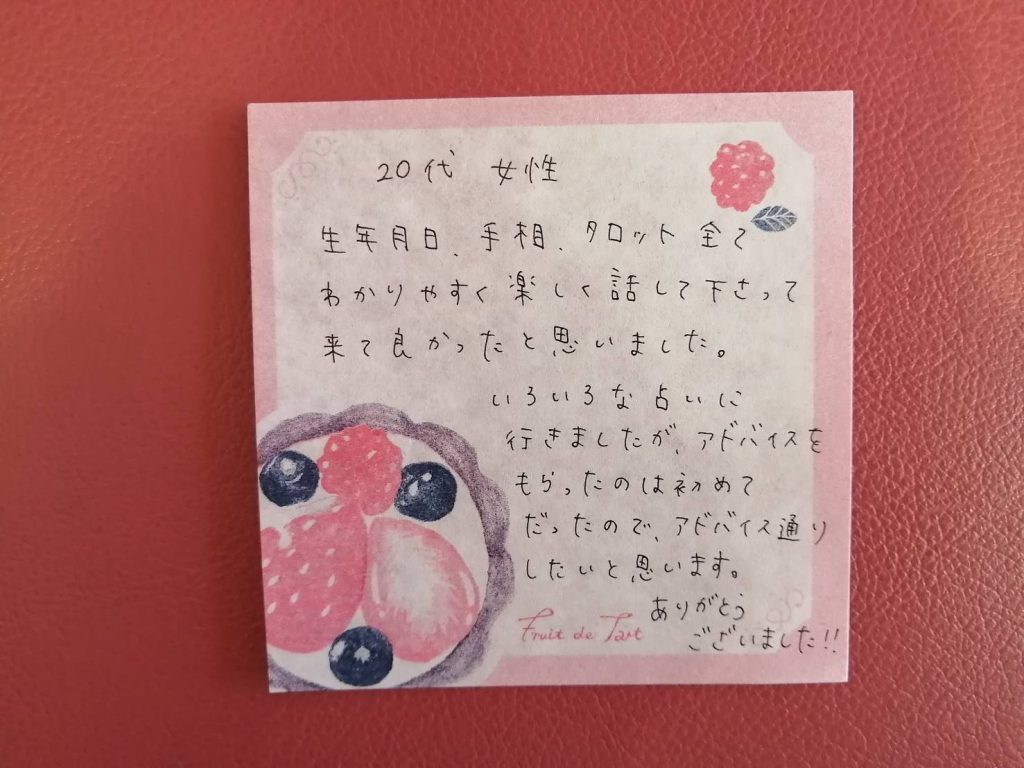 20代 女性
生年月日、手相、タロット全て
わかりやすく楽しく話して下さって
来て良かったと思いました。
いろいろな占いに
行きましたが、アドバイスを
もらったのは初めて
だったので、アドバイス通り
したいと思います。
ありがとう
ございました!!
Fruit de Tart